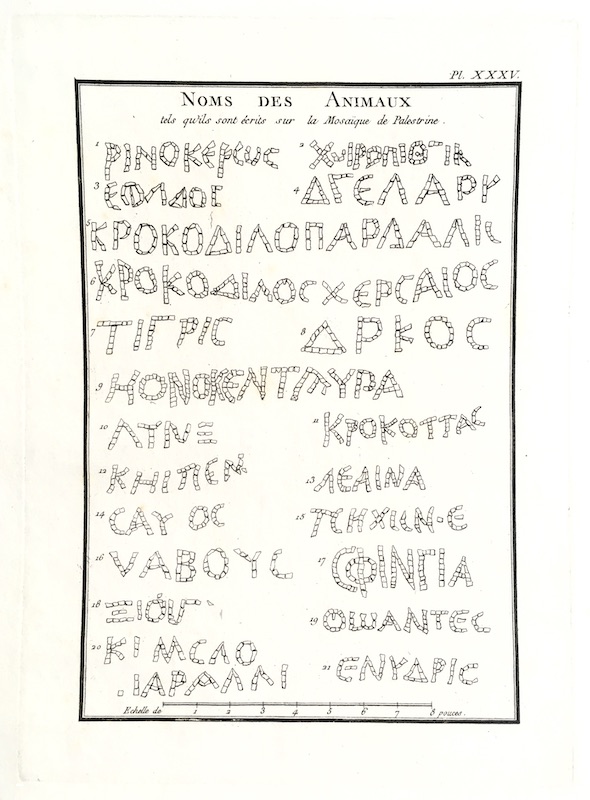 Pl. XXXV.
NOMS DES ANIMAUX
tels qu'ils sont écrits sur la Mosaïque de Palestrine.
1 ΡΙΝΟΚΕΡωϹ
2 ΧΩΙΡΟΠΙΘΙΚ
3
4 ΔΓΕΛΑΡΥ
5 ΚΡΟΚΟΔΙΛΟΠΑΡΔΑΛΙϹ
6 ΚΡΟΚΟΔΙΛΟϹ ΧΕΡϹΑΙΟϹ
7 ΤΙΓΡΙϹ
8 ΔΡΚΟϹ
9 ΗΟΝΟΚΕΝΤΑΥΡΑ
10 ΛΥΝΞ
11 ΚΡΟΚΟΤΤΑϹ
12 ΚΗΙΠΕΝ
13 ΛΕΑΙΝΑ
14 ϹΑΥΟϹ
15
16 ΝΑΒΟΥϹ
17 ϹΦΙΝΓΙΑ
18 ΞΙΟΥΓ
19 ΘωΑΝΤΕϹ
20
21 ΕΝΥΔΡΙϹ
Echelle de 1 2 3 4 5 6 7 8 pouces.